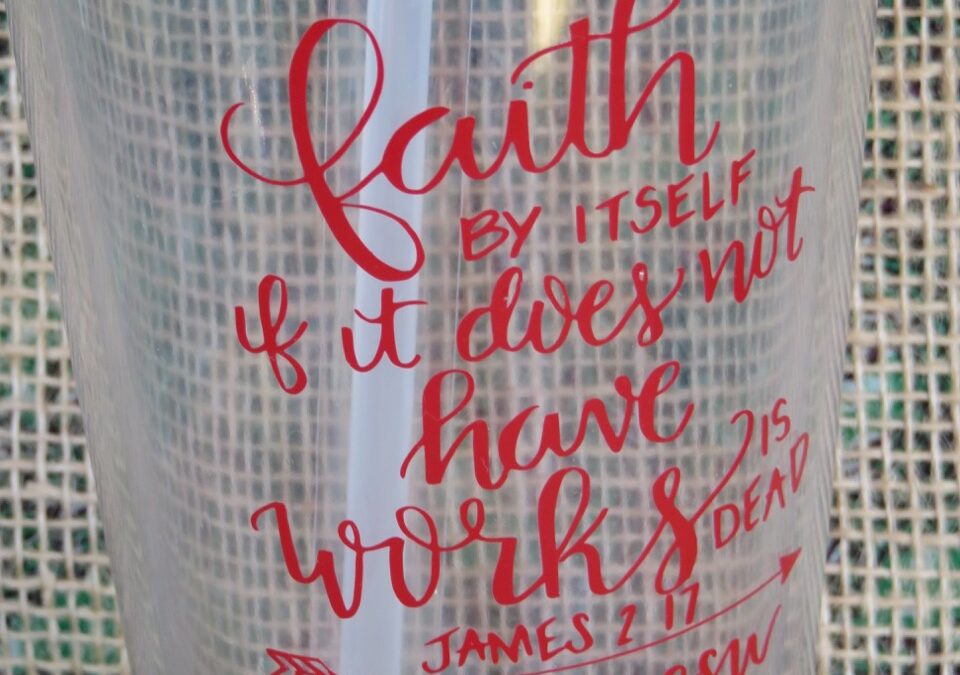 faith
BY ITSELF
if it does not
have
works IS
DEAD
JAMES 2 17